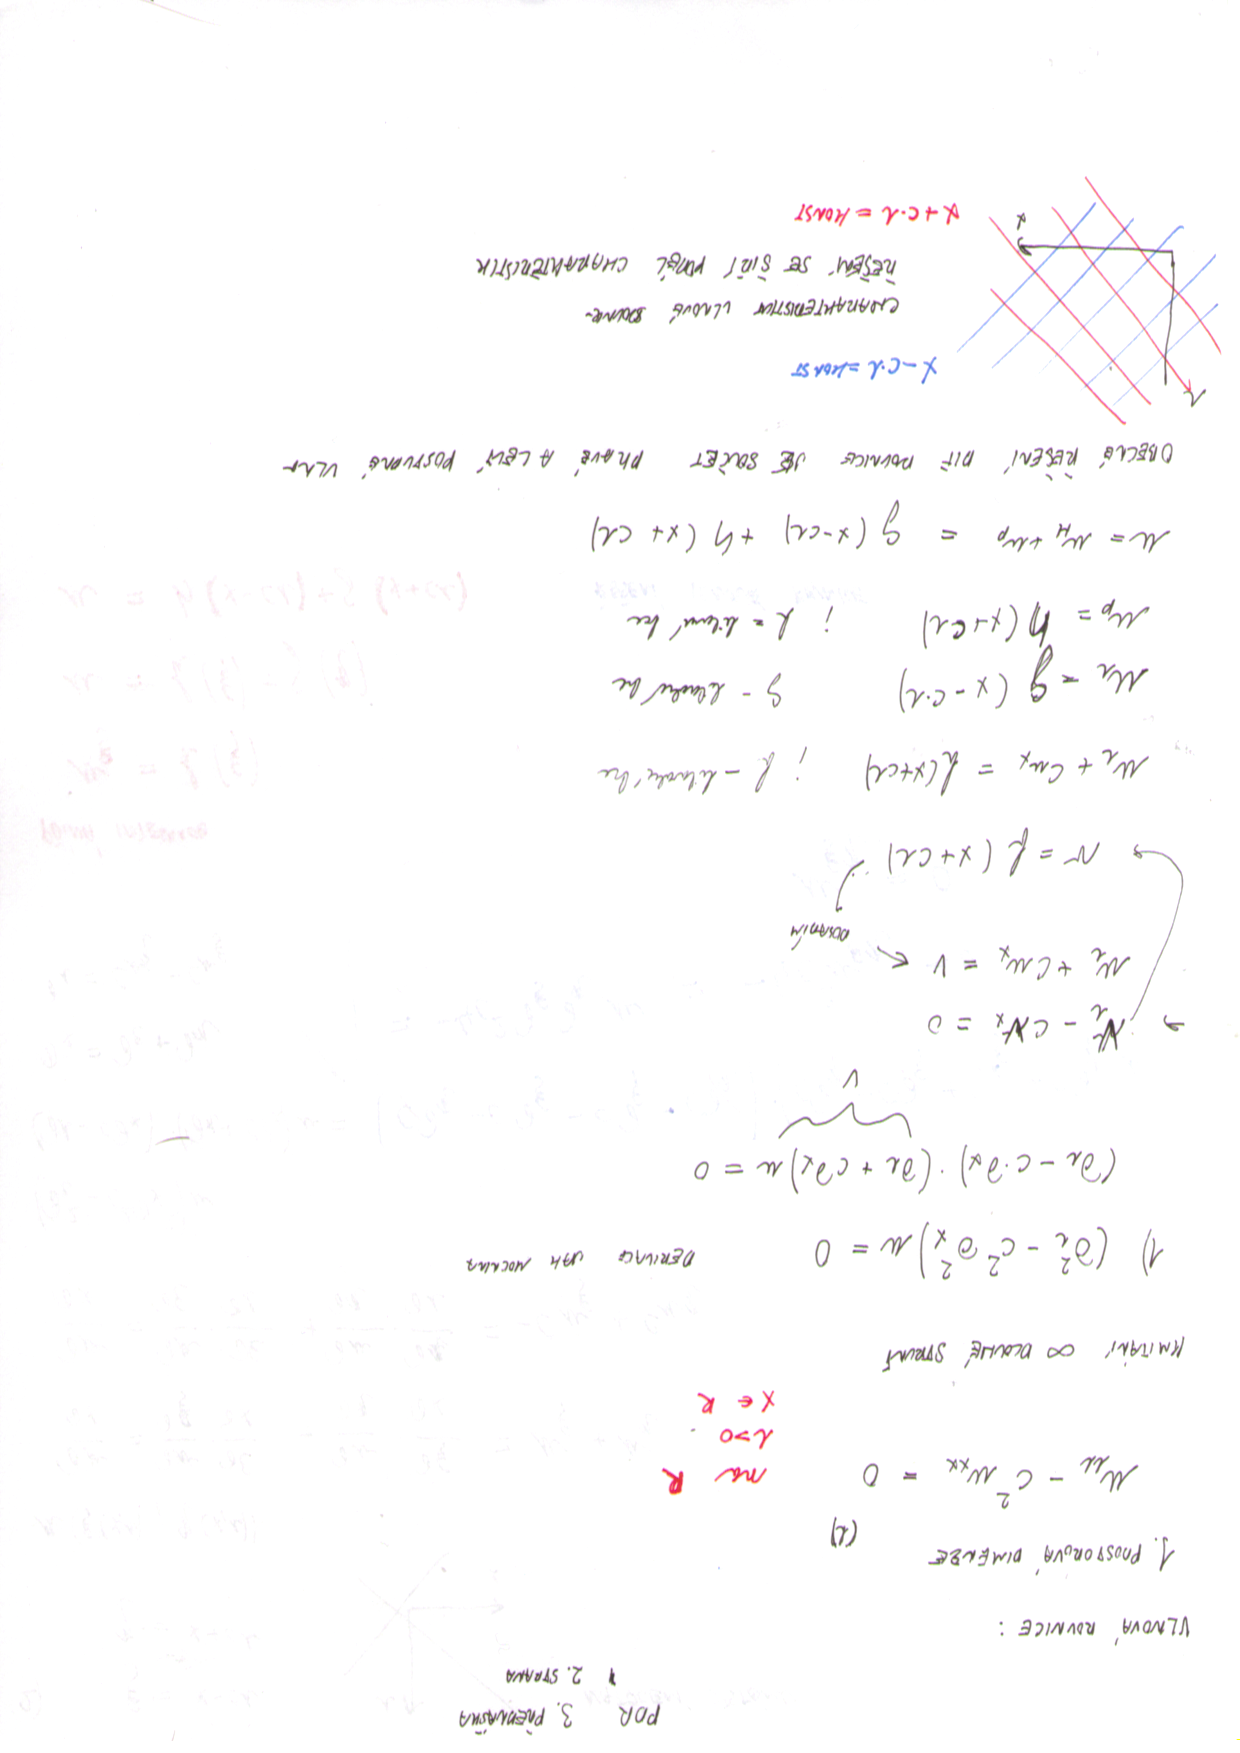 PDR 3. PŘEDNÁŠKA
2. STRANA
VLNOVÁ ROVNICE :
1. PROSTOROVÁ DIMENZE (x)
u_tt - c² u_xx = 0 na R
t>0
x ∈ R
KMITÁNÍ ∞ DLOUHÉ STRUNY
1) (∂²_t - c² ∂²_x) u = 0 DERIVACE JAK MOCNINA
(∂t - c·∂x) · (∂t + c∂x) u = 0
v
v_t - c v_x = 0
u_t + c u_x = v
DOSADÍM
v = f (x+ct)
u_t + c u_x = f (x+ct) ;
u_h = g (x - c·t) g -
u_p = h (x+ct) ;
u = u_H + u_p = g (x-ct) + h (x+ct)
OBECNÉ ŘEŠENÍ DIF ROVNICE JE SOUČET PRAVÉ A LEVÉ POSTUPNÉ VLNY
t
x - c·t = KONST
CHARAKTERISTIKY VLNOVÉ
ŘEŠENÍ SE ŠÍŘÍ PODÉL CHARAKTERISTIK
x
x + c·t = KONST